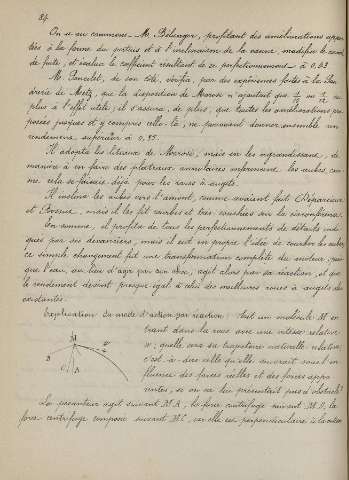 84
On a vu comment M. Bélanger, profitant des améliorations appor-
tées à la forme du pertuis et à l'inclinaison de la vanne, modifia le canal
de fuite, et évalua le coefficient résultant de ce perfectionnement à 0,63
M. Poncelet, de son côté, vérifia, par des expériences faites à la
de Metz, que la disposition de n'ajoutait que ou au
plus à l'effet utile; il s'assura, de plus, que toutes les améliorations pro-
posées jusques et y compris celle-là, ne pouvaient donner ensemble un
rendement supérieur à
Il adopta les de mais en les agrandissant, de
manière à en faire des plateaux annulaires les aubes, com-
me cela se faisait déjà pour les roues à augets.
Il inclina les aubes vers l'amont, comme avaient fait Déparcieux
et Bossut, mais il les fit courbes et très couchées sur la circonférence.
En somme, il profita de tous les perfectionnements de détails indi-
qués par ses devanciers, mais il eut en propre l'idée de courber les aubes;
ce simple changement fit une transformation complète du moteur, puis-
que l'eau, au lieu d'agir par son choc, agit alors par sa réaction, et que
le rendement devint presque égal à celui des meilleures roues à augets de
Explication du mode d'action par réaction: Soit un molécule M en-
trant dans la roue avec une vitesse relative
w; quelle sera sa trajectoire naturelle relative,
c'est-à-dire celle qu'elle suivrait sous l'in-
fluence des forces réelles et des forces appa-
rentes, si on ne lui présentait pas d'obstacle?
M
w
B
C
A
La pesanteur agit suivant MA, la force centrifuge suivant MB, la
force centrifuge composée suivant MC, car elle est perpendiculaire à la vitesse